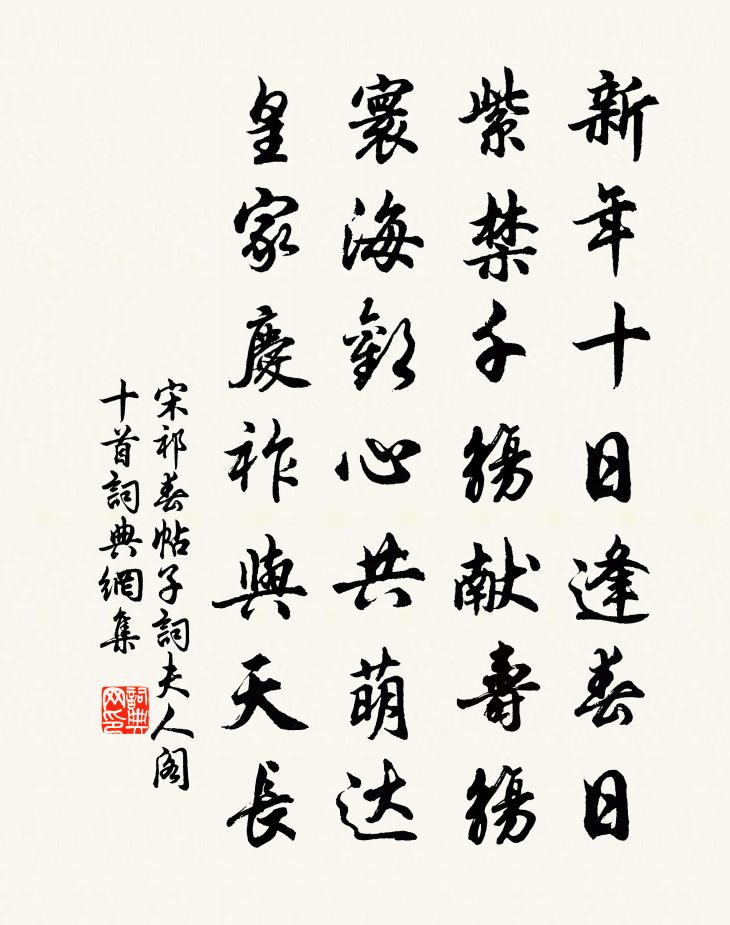 新年十日逢春日
紫禁千觴献壽觴
寰海歡心共萌达
皇家慶祚與天長
宋祁春帖子詞夫人阁
十首詞典網集
詞典网印